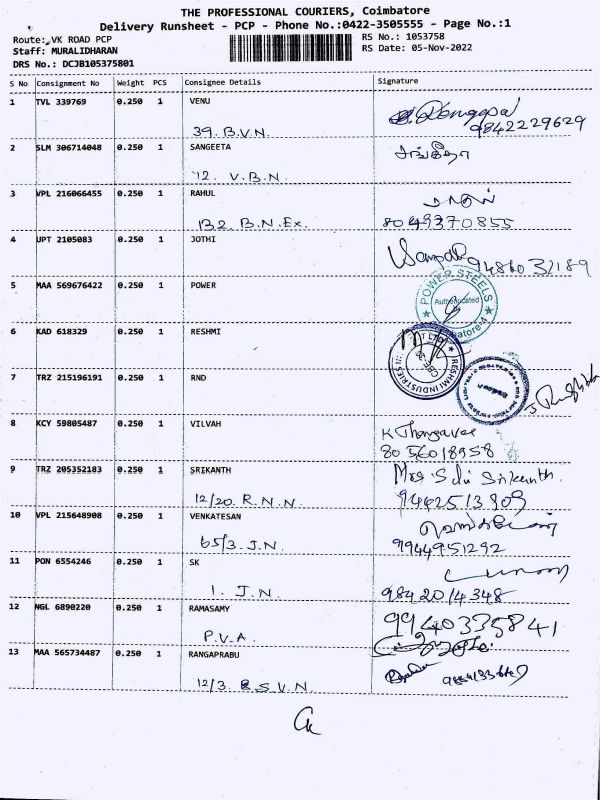 THE PROFESSIONAL COURIERS, Coimbatore
Delivery Runsheet - PCP - Phone No.:0422-3505555 - Page No.:1
Route: VK ROAD PCP
RS No.: 1053758
Staff: MURALIDHARAN
RS Date: 05-Nov-2022
DRS No.: DCJB105375801
S No Consignment No Weight PCS Consignee Details Signature
1 TVL 339769 0.250 1 VENU
39. B.V.N. 9842229629
2 SLM 306714048 0.250 1 SANGEETA சங்கீதா
12. V.B.N.
3 VPL 216066455 0.250 1 RAHUL
132. B.N.Ex. 8049370855
4 UPT 2105083 0.250 1 JOTHI
9486032189
5 MAA 569676422 0.250 1 POWER
POWER STEELS
Authenticated
6 KAD 618329 0.250 1 RESHMI
RESHMI INDUSTRIES
7 TRZ 215196191 0.250 1 RND
8 KCY 59805487 0.250 1 VILVAH
K Thangavel
8056018958
9 TRZ 205352183 0.250 1 SRIKANTH
Srikanth.
12/20. R.N.N. 9442513809
10 VPL 215648908 0.250 1 VENKATESAN
65/3. J.N. 9944951292
11 PON 6554246 0.250 1 SK
1. J.N. 9842014348
12 NGL 6890220 0.250 1 RAMASAMY
9940335841
P.V.A.
13 MAA 565734487 0.250 1 RANGAPRABU
12/3. B.S.V.N.